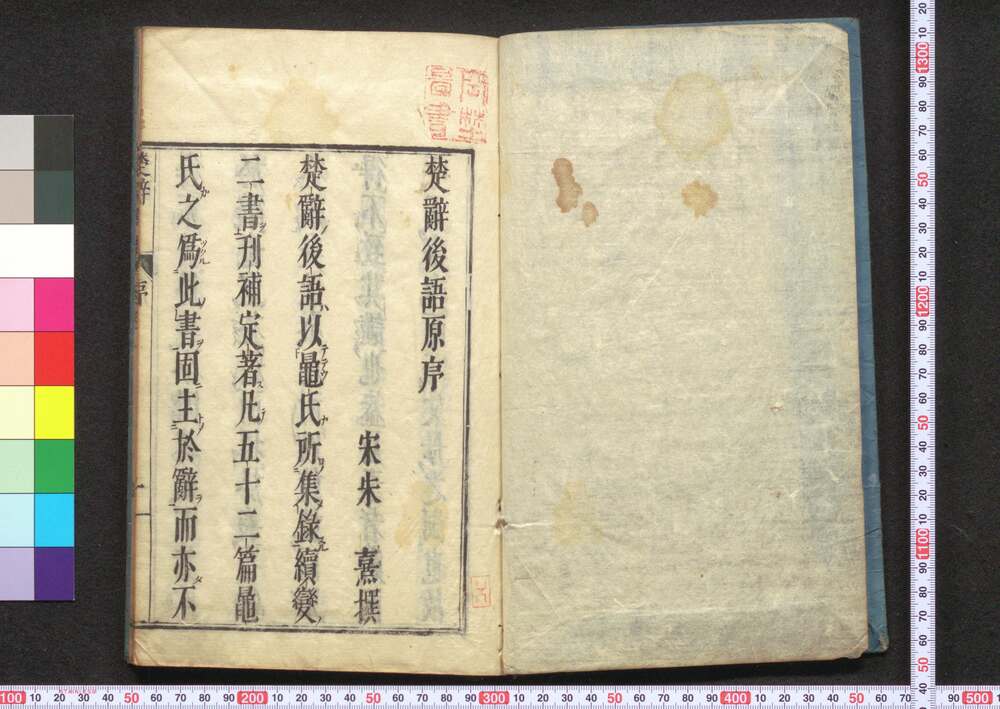 楚辭後語原序
宋朱熹撰
楚辭後語以鼂氏所集錄續變
二書刊補定著凡五十二篇鼂
氏之爲此書固主於辭而亦不
楚辭
序
一